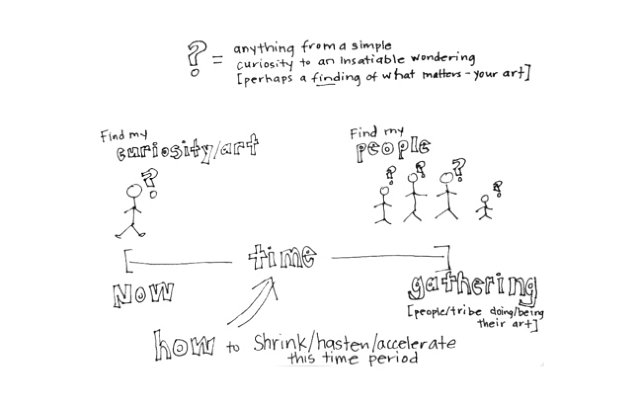 ? = anything from a simple
curiosity to an insatiable wondering
[perhaps a finding of what matters - your art]
Find my
curiosity/art
?
Find my
people
? ? ? ?
[ time ]
Now
gathering
[people/tribe doing/being
their art]
how to shrink/hasten/accelerate
this time period